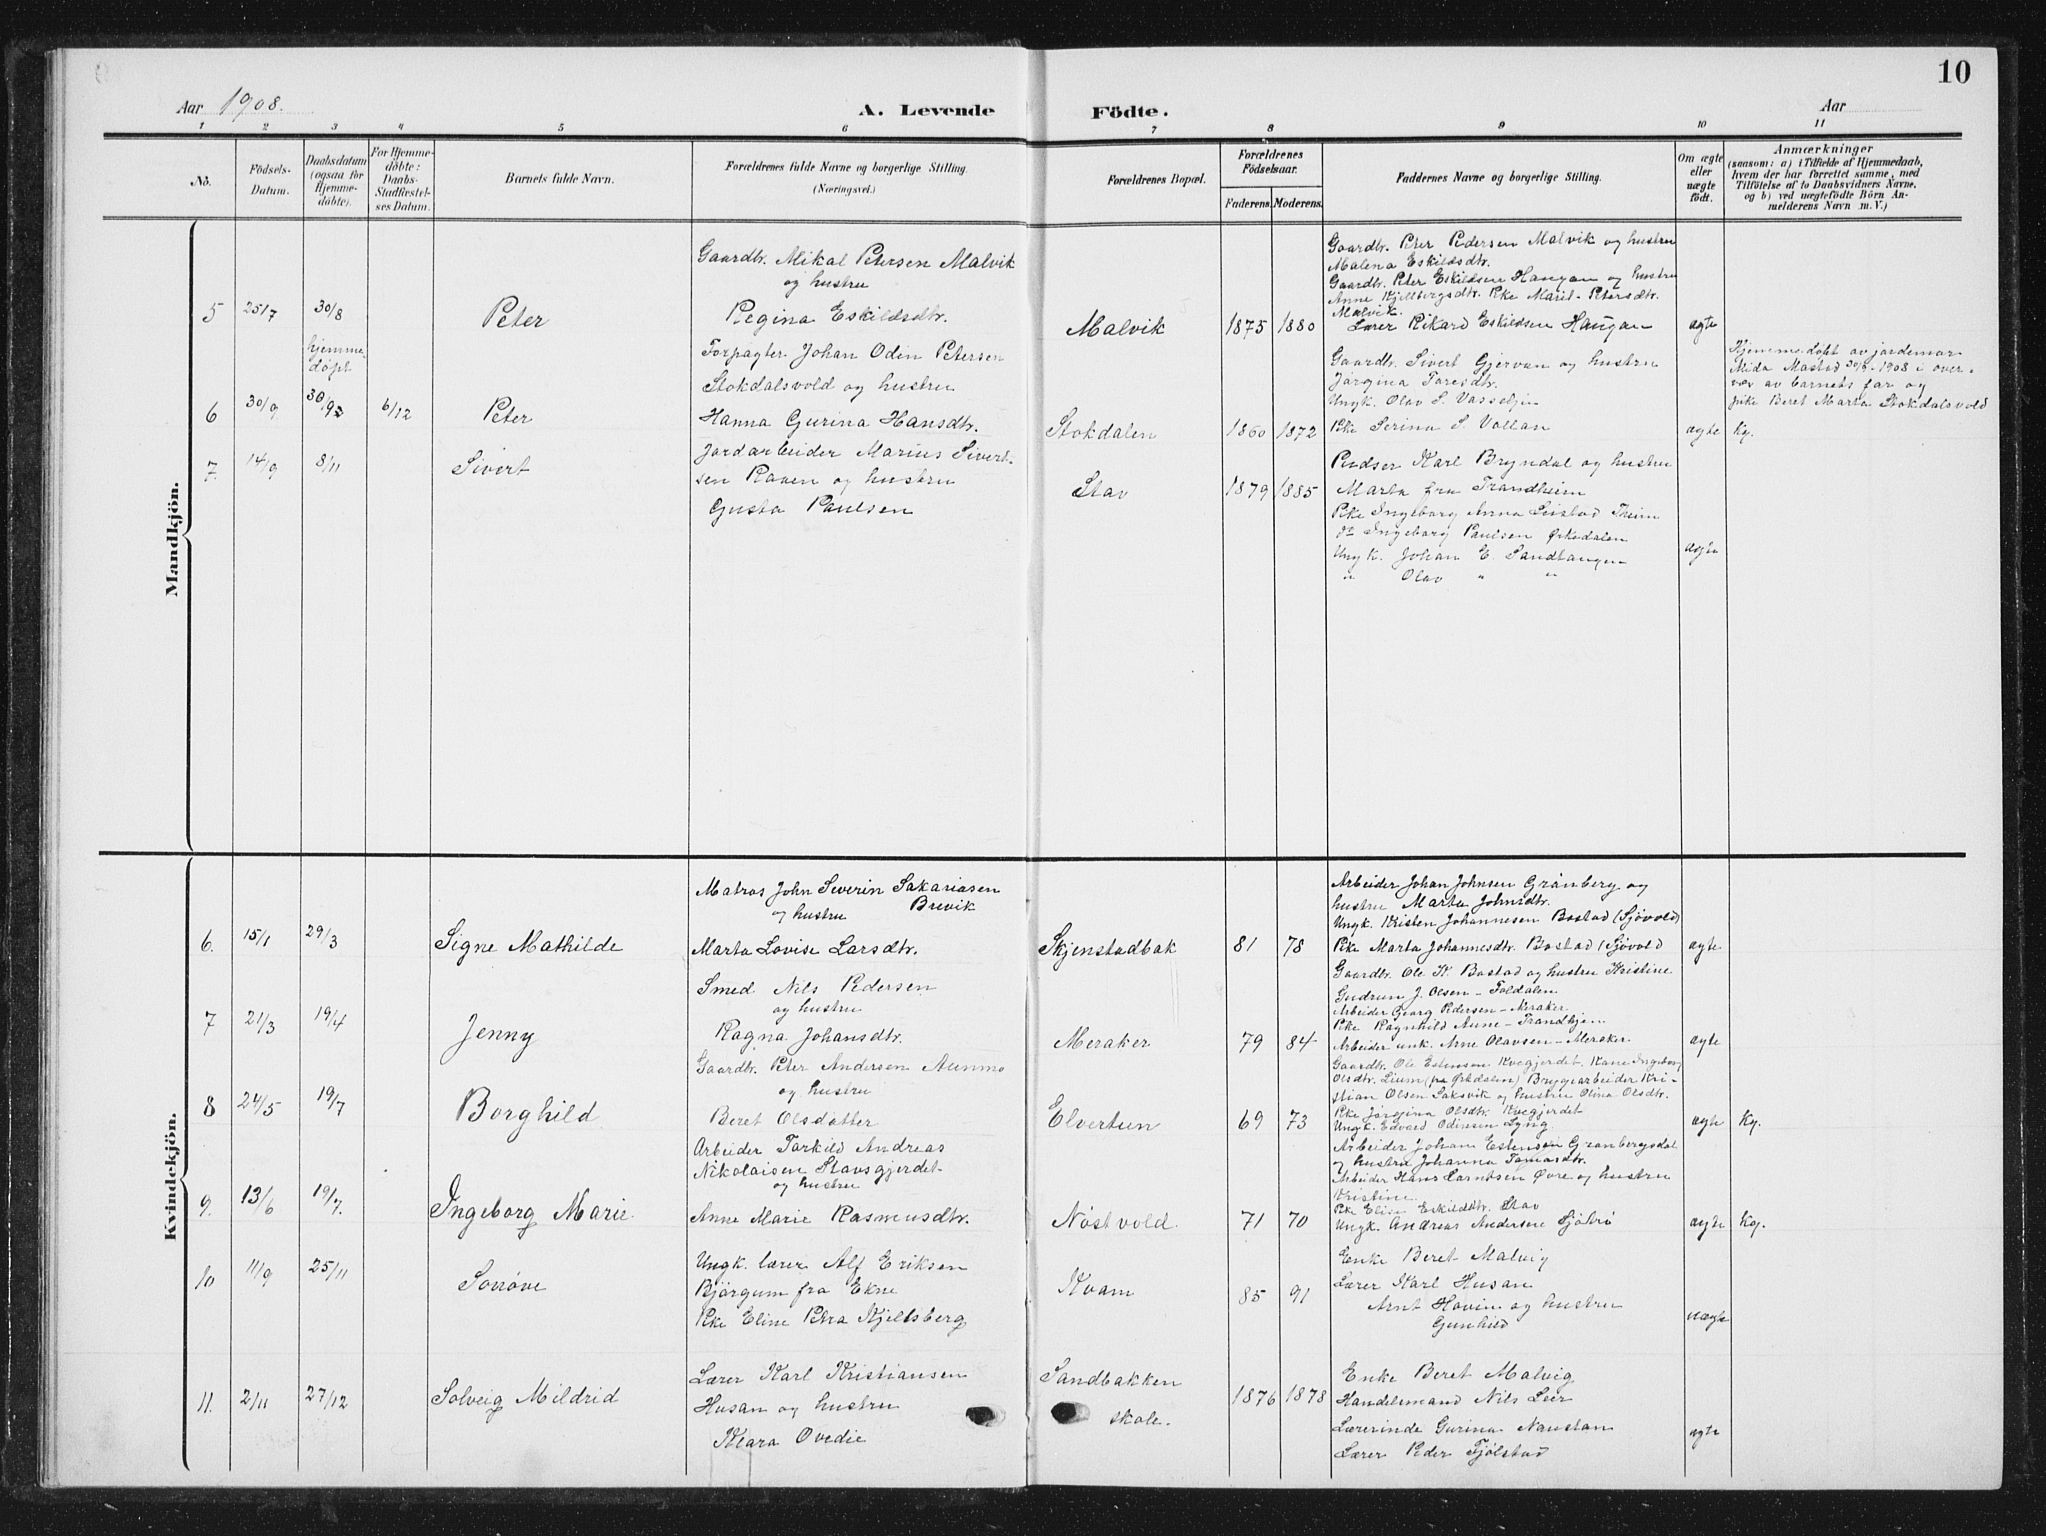 10
Aar 1908.
A. Levende Födte.
Aar
1 2 3 4 5 6 7 8 9 10 11
No.
Födsels-
Datum.
Daabsdatum
(ogsaa for
Hjemme-
döbte).
For Hjemme-
döbte:
Daabs-
Stadfæstel-
ses Datum.
Barnets fulde Navn.
Forældrenes fulde Navne og borgerlige Stilling.
(Næringsvei.)
Forældrenes Bopæl.
Forældrenes
Födselsaar.
Faderens. Moderens.
Faddernes Navne og borgerlige Stilling.
Om ægte
eller
uægte
födt.
Anmærkninger
(saasom: a) i Tilfælde af Hjemmedaab,
hvem der har forrettet samme, med
Tilföielse af to Daabsvidners Navne,
og b) ved uægtefödte Börn An-
melderens Navn m. V.)
Mandkjön.
5 25/7 30/8 Peter
Gaardbr. Mikal Petersen Malvik
og hustru
Regina Eskildsdtr.
Malvik 1875 1880
Gaardbr. Peter Pedersen Malvik og hustru
Malena Eskildsdtr.
Gaardbr. Peter Eskildsen Haugan og hustru
Anne Kjellbergsdtr. Pike Marit Petersdtr.
Malvik.
Lærer Rikard Eskildsen Haugan
ægte
6 30/9 hjemme-
døpt
30/9 6/12 Peter
Forpagter Johan Odin Petersen
Stokdalsvold og hustru
Hanna Gurina Hansdtr.
Stokdalen 1860 1872
Gaardbr. Sivert Gjervan og hustru
Jørgina Toresdtr.
Ungk. Olav S. Vasseljen
Pke Serina S. Vollan
ægte kg.
Hjemmedøpt av jordemor
Mida Mostad 30/9 1908 i over-
vær av barnets far og
pike Beret Marta Stokdalsvold
7. 14/9 8/11 Sivert
Jordarbeider Marius Sivert-
sen Raaen og hustru
Gusta Paulsen
Stav 1879 1885
Pudser Karl Bryndal og hustru
Marta fra Trondheim
Pke Ingeborg Anna Leistad Theim
do Ingeborg Paulsen Ørkedalen
Ungk. Johan E. Sandtangen
" Olav " "
ægte
Kvindekjön.
6. 15/1 29/3 Signe Mathilde
Matros John Severin Sakariasen
og hustru Brevik
Marta Lovise Larsdtr.
Skjenstadbak 81 78
Arbeider Johan Johnsen Grønberg og
hustru Marta Johnsdtr.
Ungk. Kristen Johannesen Bostad (Sjøvold)
Pke Marta Johannesdtr. Bostad (Sjøvold
ægte
7 21/3 19/4 Jenny
Smed Nils Pedersen
og hustru
Ragna Johansdtr.
Meraker 79 84
Gaardbr. Ole K. Bostad og hustru Kristine
Gudrun J. Olsen - Foldalen
Arbeider Georg Pedersen - Meraker
Pke Ragnhild Aune - Trondhjem
Arbeider unk. Arne Olavsen - Meraker
ægte
8 24/5 19/7 Borghild
Gaardbr. Peter Andersen Aunmo
og hustru
Beret Olsdatter
Elvertun 69 73
Gaardbr. Ole Estensen Kvegjerdet. Kone Ingeborg
Olsdtr. Lium (fra Ørkedalen) Bryggearbeider Kri-
stian Olsen Saksvik og hustru Olina Olsdtr.
Pke Jørgina Olsdtr. Kvegjerdet
Ungk. Edvard Odinsen Lyng
ægte kg.
9. 13/6 19/7. Ingeborg Marie
Arbeider Torkild Andreas
Nikolaisen Stavsgjerdet
og hustru
Anne Marie Rasmusdtr.
Nøstvold. 71 70
Arbeider Johan Estensen Granbergsdal
og hustru Johanna Tomasdtr.
Arbeider Hans Larntsen Øvre og hustru
Kristine
Pke Elise Eskildtr. Stav
Ungk. Andreas Andersen Sjøbrø
ægte kg.
10 11/9 25/11 Sonøve
Ungk. lærer Alf Eriksen
Bjørgum fra Ekne
Pke Eline Petra Kjeldsberg
Kvam 85 91
Enke Beret Malvig
Lærer Karl Husan
Arnt Hovin og hustru
Gunhild
uægte
11. 2/11 27/12 Solveig Mildrid
Lærer Karl Kristiansen
Husan og hustru
Klara Ovedie
Sandbakken
skole. 1876 1878
Enke Beret Malvig
Handelsmand Nils Leer
Lærerinde Gurina Naustan
Lærer Peder Fjølstad
ægte